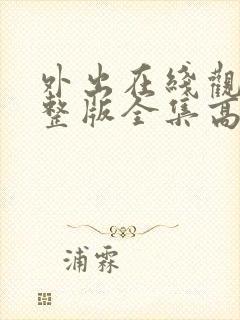 外出在綫觀
整版全集高
浦霖